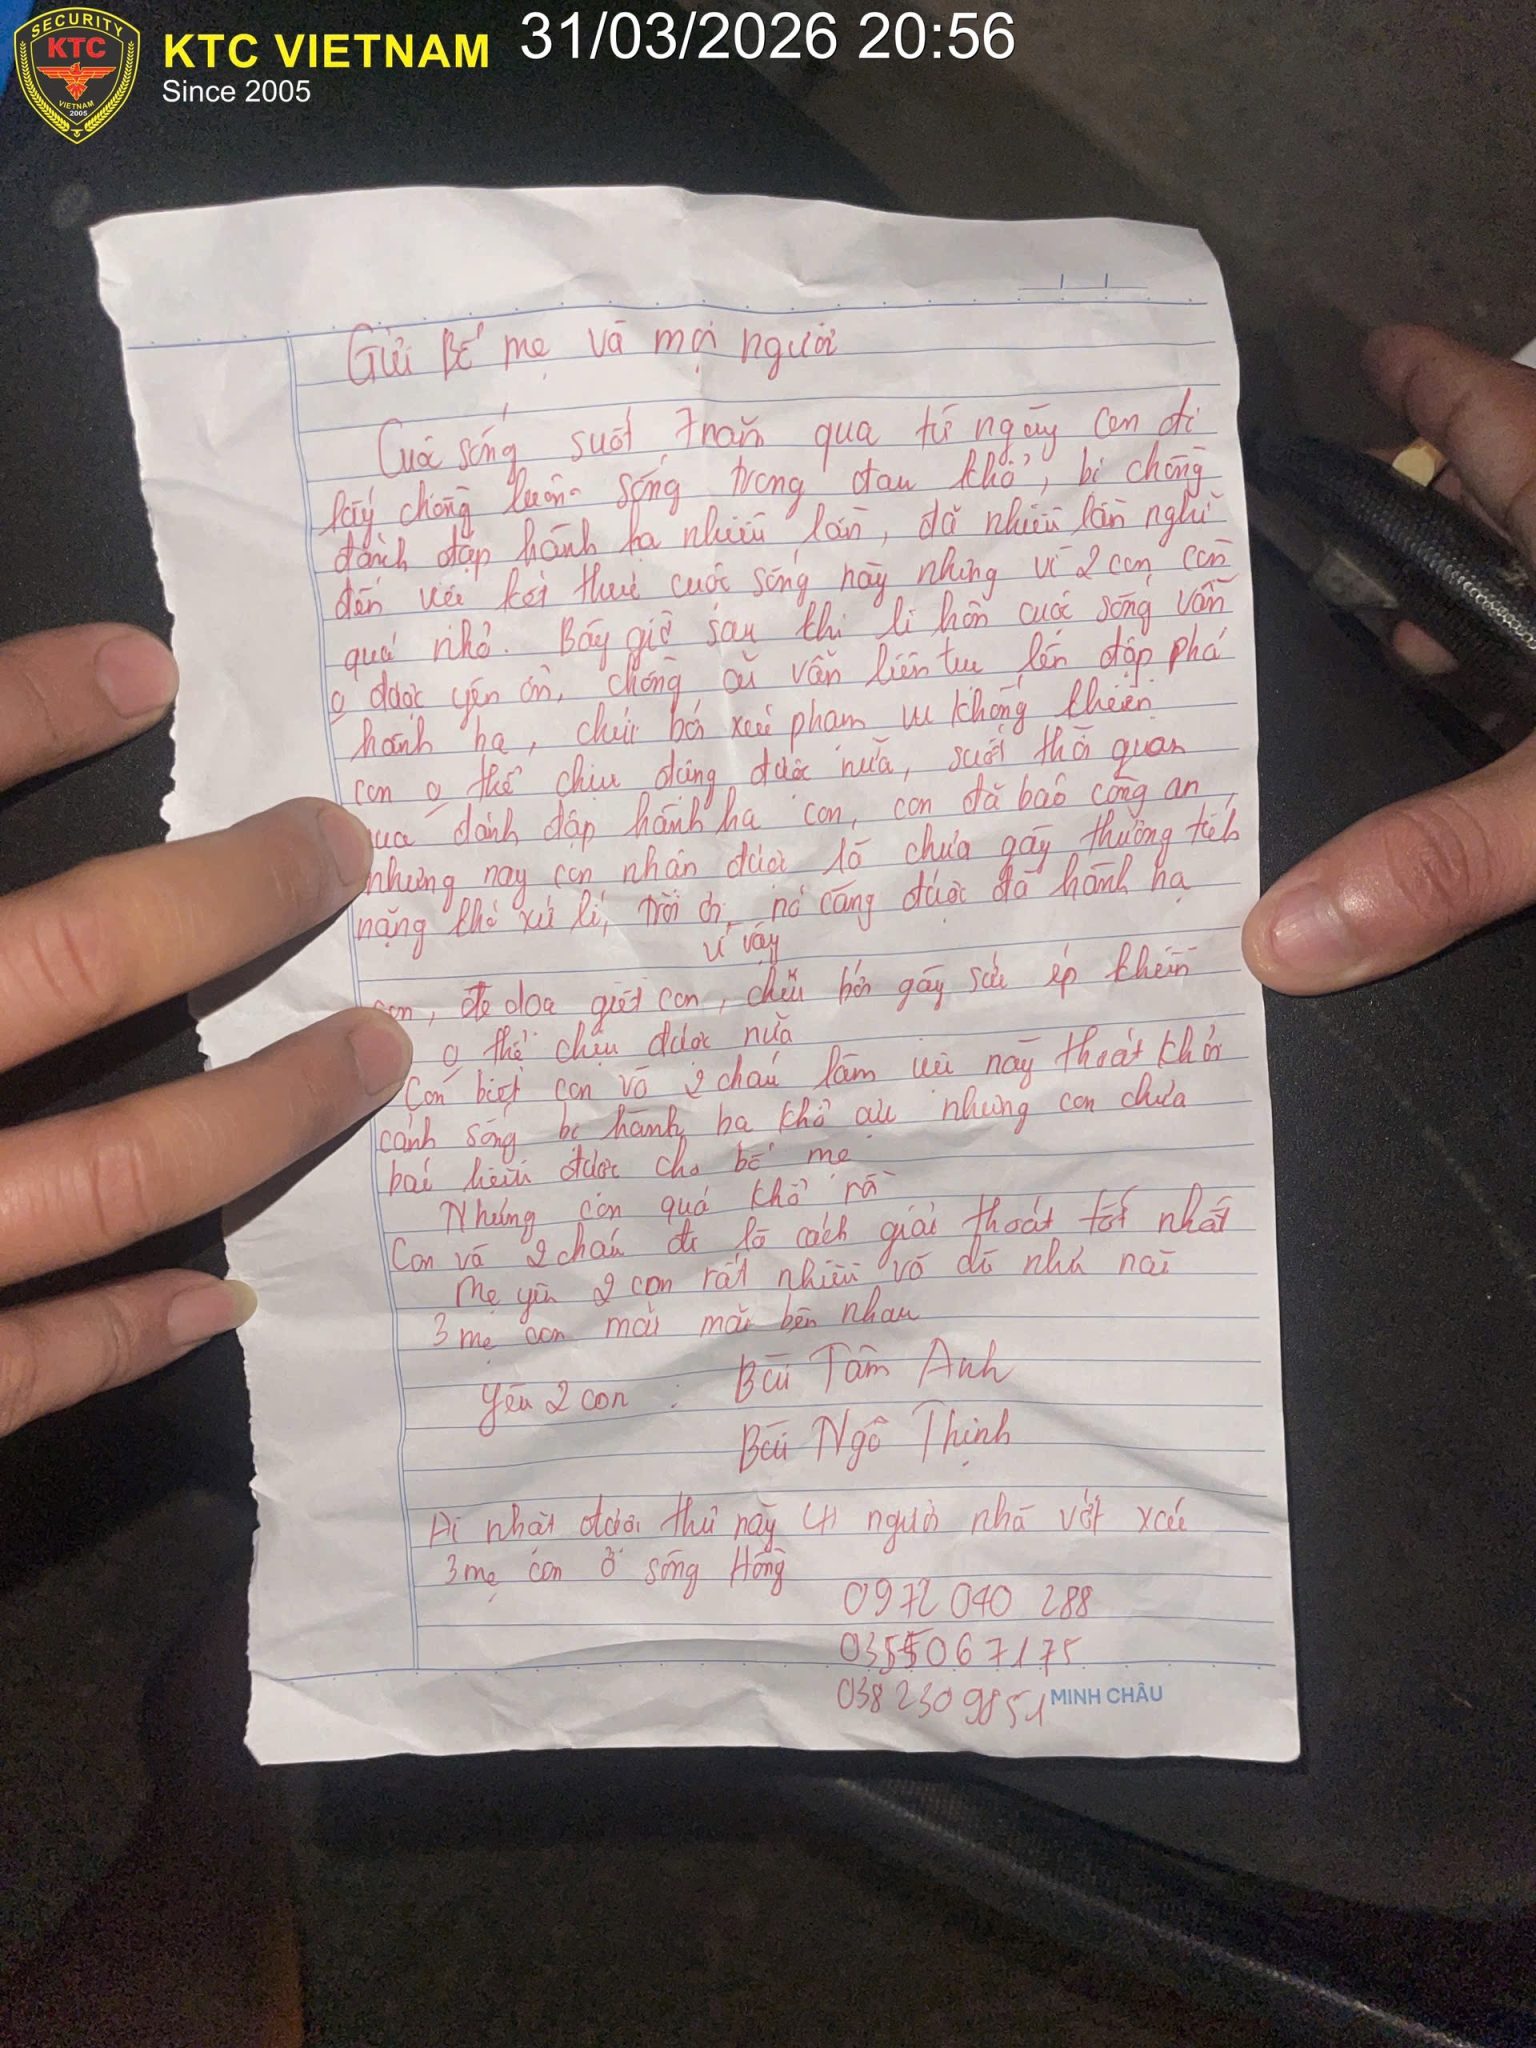 SECURITY
KTC
VIETNAM
2005
KTC VIETNAM
Since 2005
31/03/2026 20:56
Gửi Bố mẹ và mọi người
Cuộc sống suốt 7 năm qua từ ngày con đi
lấy chồng luôn sống trong đau khổ, bị chồng
đánh đập hành hạ nhiều lần, đã nhiều lần nghĩ
đến việc kết thúc cuộc sống này nhưng vì 2 con còn
quá nhỏ. Bây giờ sau khi li hôn cuộc sống vẫn
o được yên ổn, chồng cũ vẫn liên tục lên đập phá
hành hạ, chửi bới xúc phạm khiến
con o thể chịu đựng được nữa, suốt thời quan
qua đánh đập hành hạ con, con đã báo công an,
nhưng nay con nhận được là chưa gây thương tích
nặng khó xử lí, trời ơi, nó càng được đà hành hạ
vì vậy
con, đe doạ giết con, chửi bới gây sức ép khiến
o thể chịu được nữa
Con biết con và 2 cháu làm việc này thoát khỏi
cảnh sống bị hành hạ khổ cực nhưng con chưa
báo hiếu được cho bố mẹ
Nhưng con quá khổ rồi
Con và 2 cháu đi là cách giải thoát tốt nhất
Mẹ yêu 2 con rất nhiều và dù như nào
3 mẹ con mãi mãi bên nhau
Yêu 2 con : Bùi Tâm Anh
Bùi Ngô Thịnh
Ai nhặt được thư này gọi người nhà vớt xác
3 mẹ con ở sông Hồng
0972 040 288
0355067175
038 230 9851
MINH CHÂU